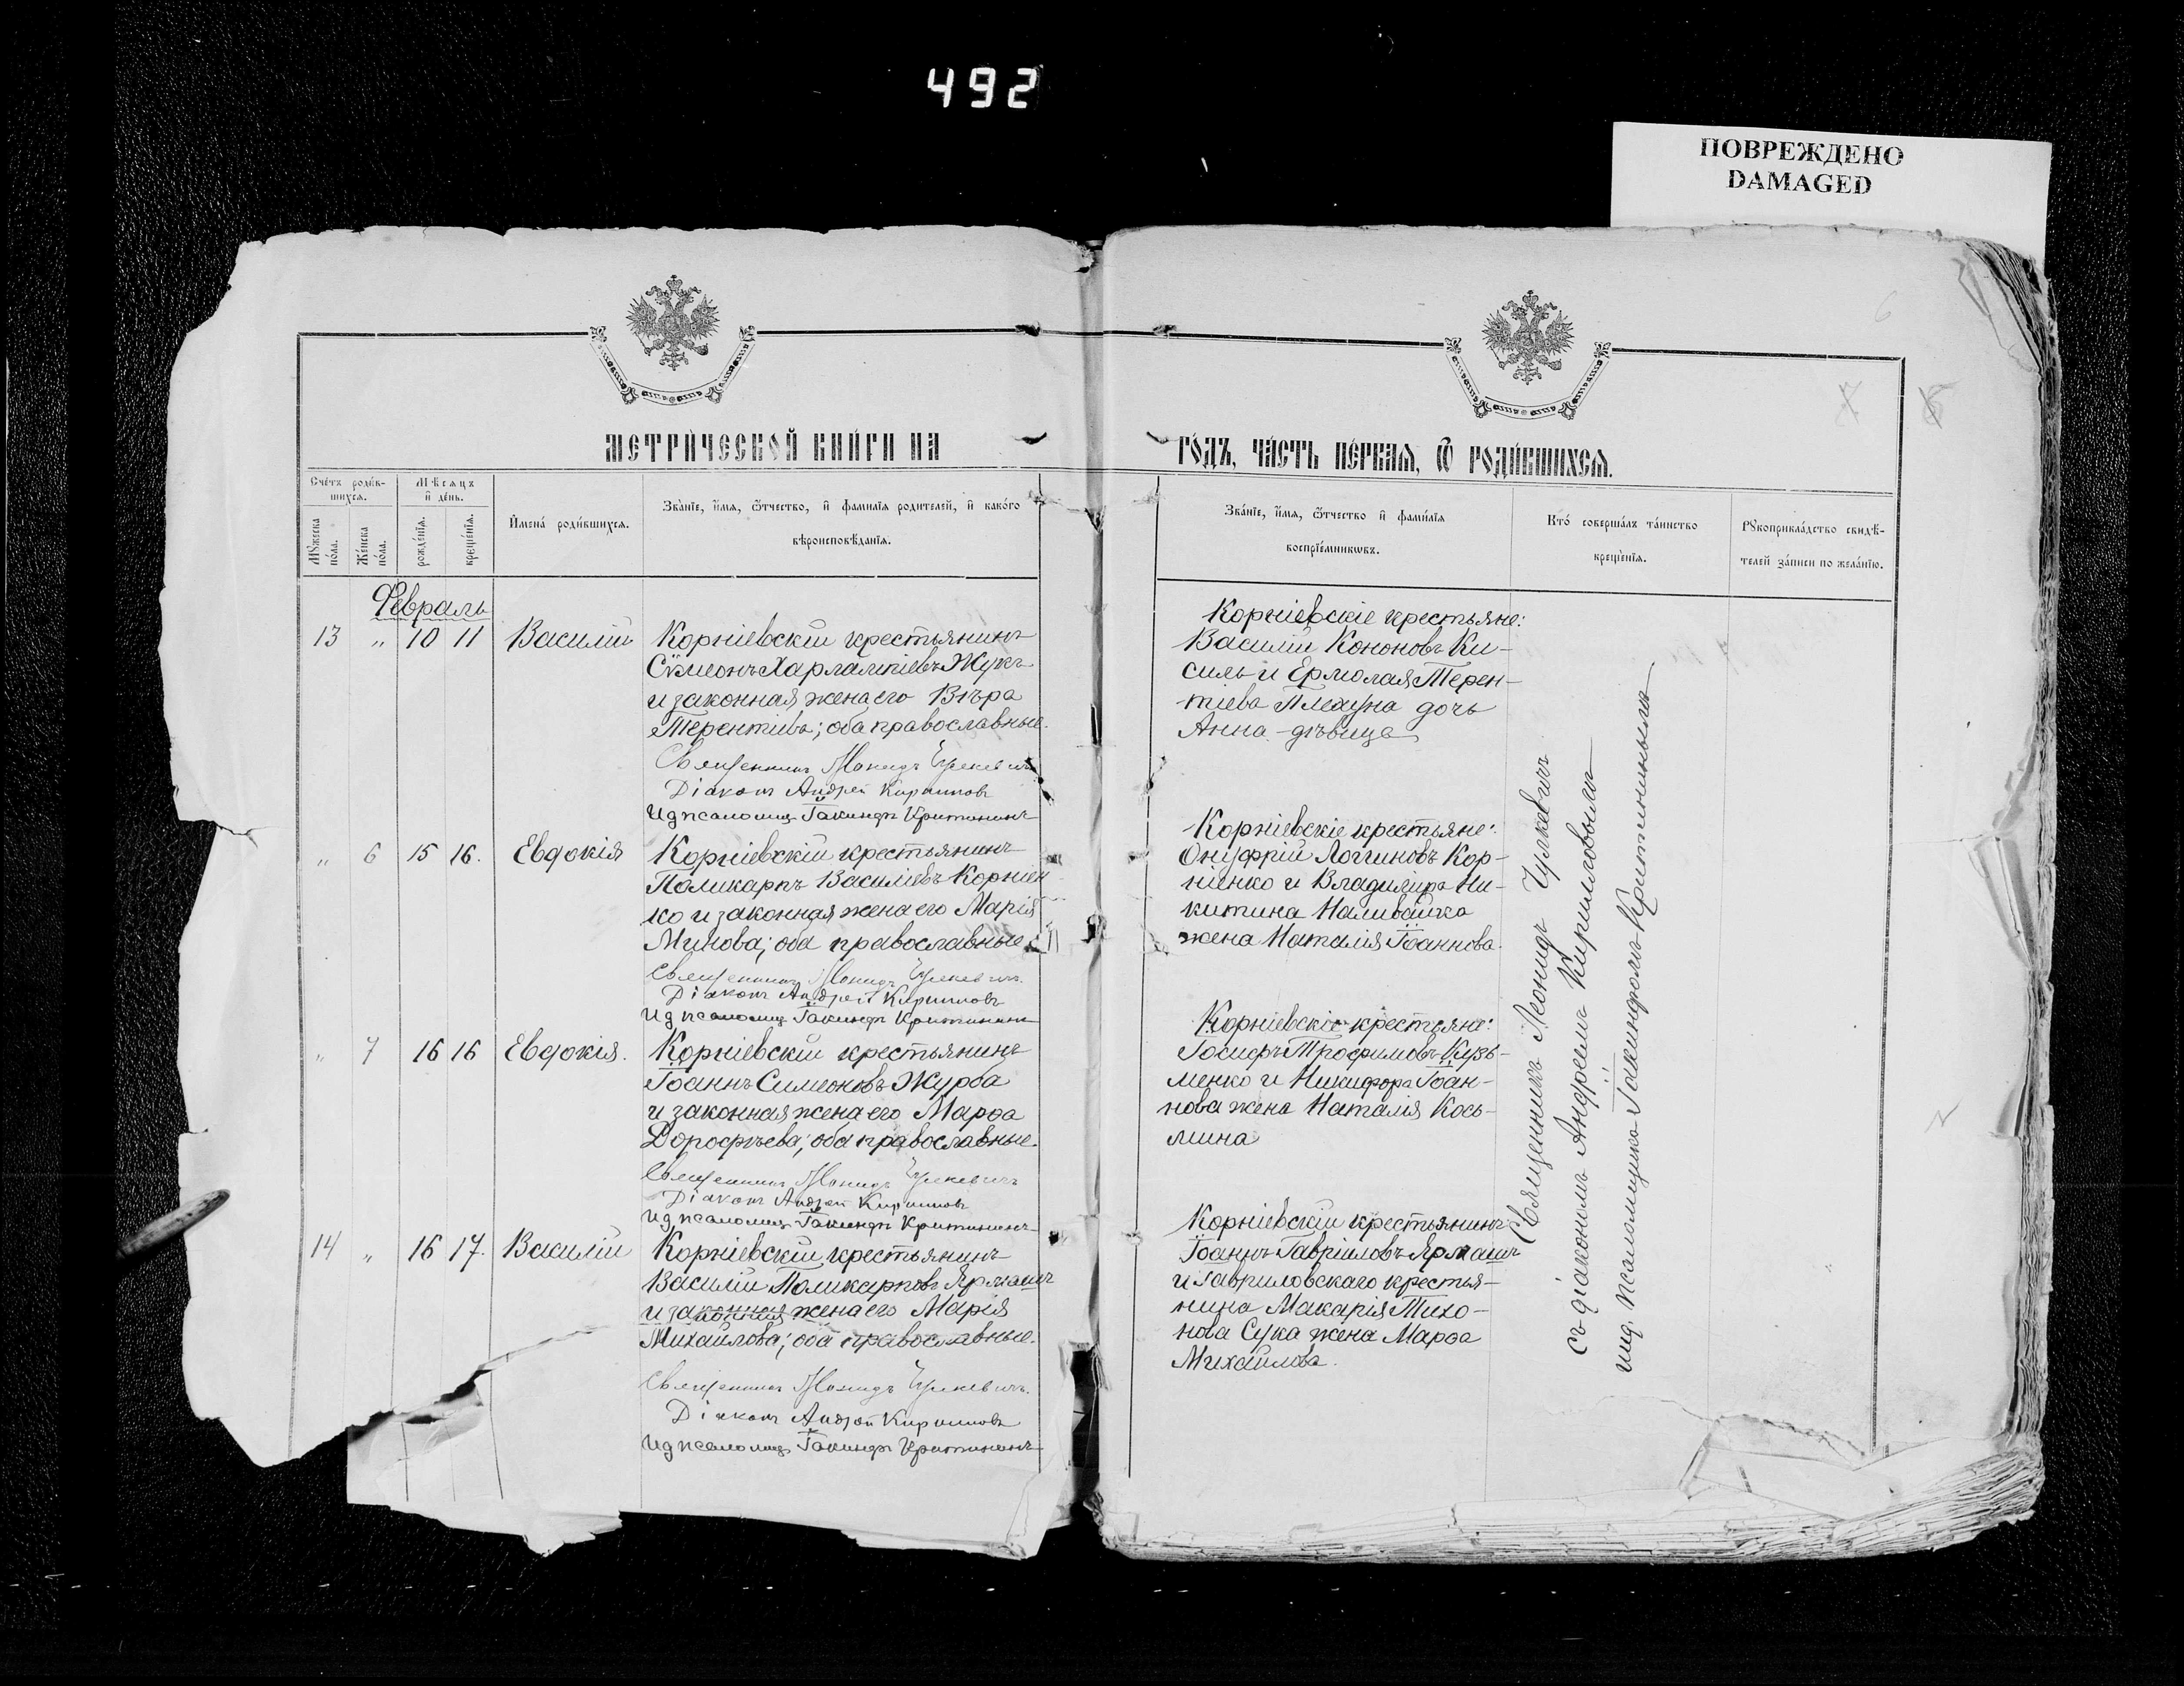 492
ПОВРЕЖДЕНО
DAMAGED
МЕТРИ́ЧЕСКОЙ КНИ́ГИ НА
ГО́ДЪ, ЧА́СТЬ ПЕ́РВАЯ, Ѿ РОДИ́ВШИХСЯ.
Сче́тъ роди́в-
шихся.
Мѣ́сяцъ
и҆ де́нь.
Мꙋ́жеска
по́ла.
Же́нска
по́ла.
рожде́нїя.
креще́нїя.
И҆мена́ роди́вшихся.
Зва́нїе, и҆́мя, ѻ҆́тчество, и҆ фами́лїя роди́телей, и҆ како́го
вѣроисповѣ́данїя.
Зва́нїе, и҆́мя, ѻ҆́тчество и҆ фами́лїя
воспрїе́мникѡвъ.
Кто́ соверша́лъ та́инство
креще́нїя.
Рꙋкоприкла́дство свидѣ́-
телей за́писи по жела́нїю.
Февраль
13 „ 10 11 Василій
Корніевскій крестьянинъ
Сѵмеонъ Харлампіевъ Жукъ
и законная жена его Вѣра
Терентіева; оба православные.
Священникъ Леонидъ Чулкевичъ
Діаконъ Андрей Кирилловъ
Ид псаломщ Іакинфъ Критининъ
Корніевскіе крестьяне:
Василій Кононовъ Ки-
силь и Ермолая Терен-
тіева Плахуна дочь
Анна дѣвица
„ 6 15 16. Евдокія
Корніевскій крестьянинъ
Поликарпъ Василіевъ Корніен
ко и законная жена его Марія
Минова; оба православные
Священникъ Леонидъ Чулкевичъ.
Діаконъ Андрей Кирилловъ
Ид псаломщ Іакинфъ Критининъ
Корніевскіе крестьяне:
Онуфрій Логгиновъ Кор-
ніенко и Владиміра Ни-
китина Наливайка
жена Наталія Іоаннова.
„ 7 16 16 Евдокія.
Корніевскій крестьянинъ
Іоаннъ Симеоновъ Журба
и законная жена его Марѳа
Дорофѣева; оба православные.
Священникъ Леонидъ Чулкевичъ
Діаконъ Андрей Кирилловъ
Ид псаломщ Іакинфъ Критининъ
Корніевскіе крестьяне:
Іосифъ Трофимовъ Кузь-
менко и Никифора Іоан-
нова жена Наталія Кось-
мина
14 „ 16 17. Василій
Корніевскій крестьянинъ
Василій Поликарповъ Ярмашъ
и законная жена его Марія
Михайлова; оба православные.
Священникъ Леонидъ Чулкевичъ.
Діаконъ Андрей Кирилловъ
Ид псаломщ Іакинфъ Критининъ
Корніевскій крестьянинъ
Іоаннъ Гавріиловъ Ярмашъ
и Гавриловскаго крестья-
нина Макарія Тихо-
нова Сука жена Марѳа
Михайлова.
Священникъ Леонидъ Чулкевичъ
съ діакономъ Андреемъ Кирилловымъ
и ид. псаломщика Іакинфомъ Критининымъ